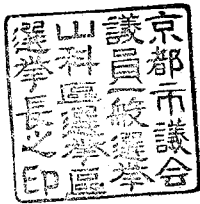 京都市議会
議員一般選挙
山科区選挙区
選挙長之印